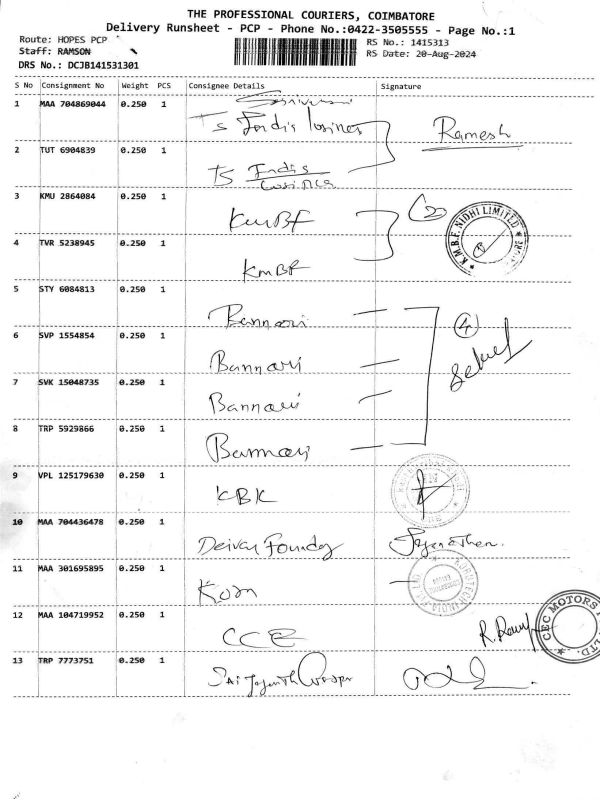 THE PROFESSIONAL COURIERS, COIMBATORE
Delivery Runsheet - PCP - Phone No.:0422-3505555 - Page No.:1
Route: HOPES PCP
RS No.: 1415313
Staff: RAMSON
RS Date: 20-Aug-2024
DRS No.: DCJB141531301
S No Consignment No Weight PCS Consignee Details Signature
1 MAA 704869044 0.250 1 Ts India
Ramesh
2 TUT 6904839 0.250 1 TS India
3 KMU 2864084 0.250 1 KMBF
K.M.B.F. NIDHI LIMITED
4 TVR 5238945 0.250 1 KMBF
5 STY 6084813 0.250 1 Bannari
4
6 SVP 1554854 0.250 1 Bannari
7 SVK 15048735 0.250 1 Bannari
8 TRP 5929866 0.250 1 Bannari
9 VPL 125179630 0.250 1 KBK
10 MAA 704436478 0.250 1 Foundry
11 MAA 301695895 0.250 1
12 MAA 104719952 0.250 1 CCE
CBC MOTORS
13 TRP 7773751 0.250 1 SAI